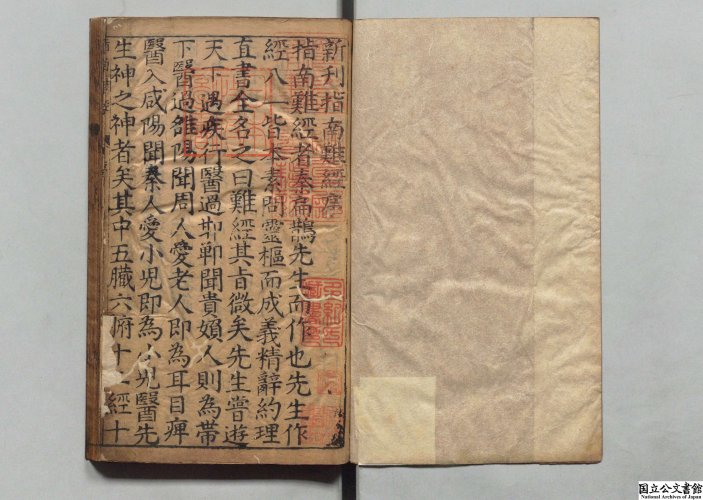 新刊指南難經序
指南難經者秦扁鵲先生而作也先生作
經八一皆本素問靈樞而成義精辭約理
直書全名之曰難經其旨微矣先生嘗遊
天下遇疾行醫過邯鄲聞貴嬪人則為帶
下醫過雒陽聞周人愛老人即為耳目痺
醫入咸陽聞秦人愛小兒即為小兒醫先
生神之神者矣其中五臟六腑十經十
国立公文書館
National Archives of Japan